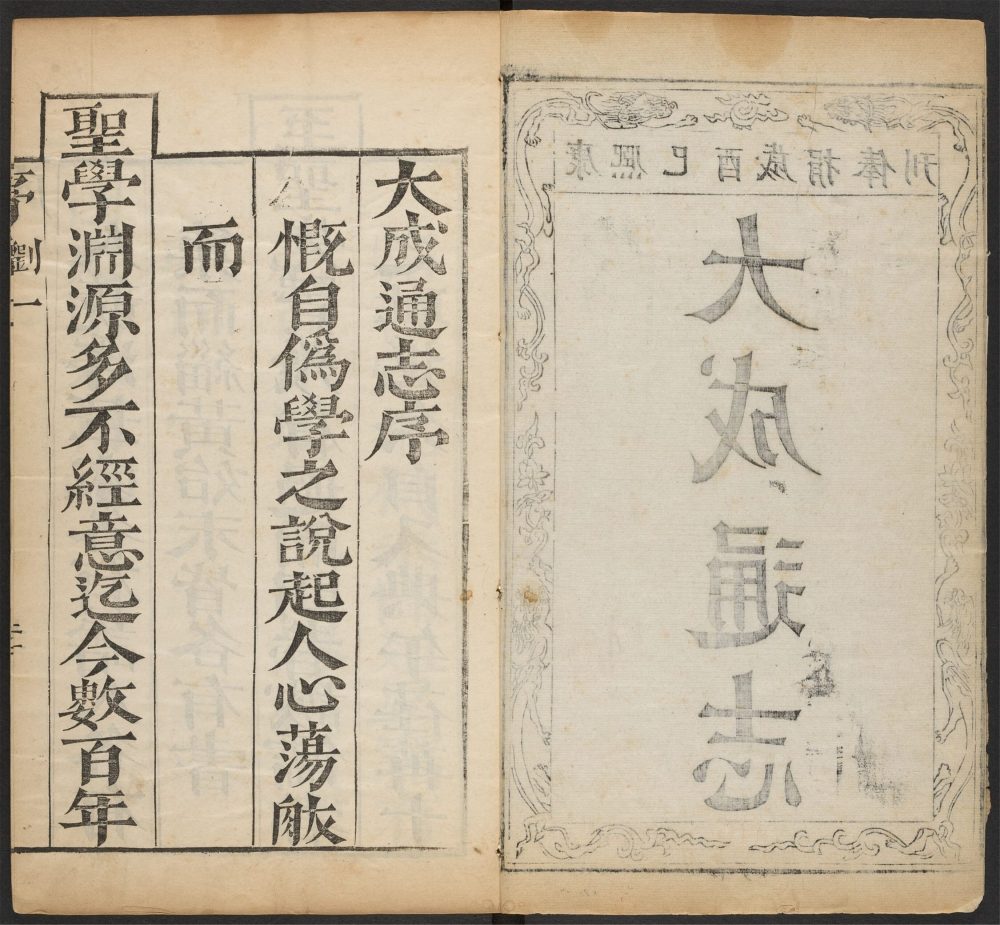 康熙己酉歲捐俸刊
大成通志
大成通志序
慨自偽學之說起人心蕩
而
聖學淵源多不經意迄今數百年
序 劉一